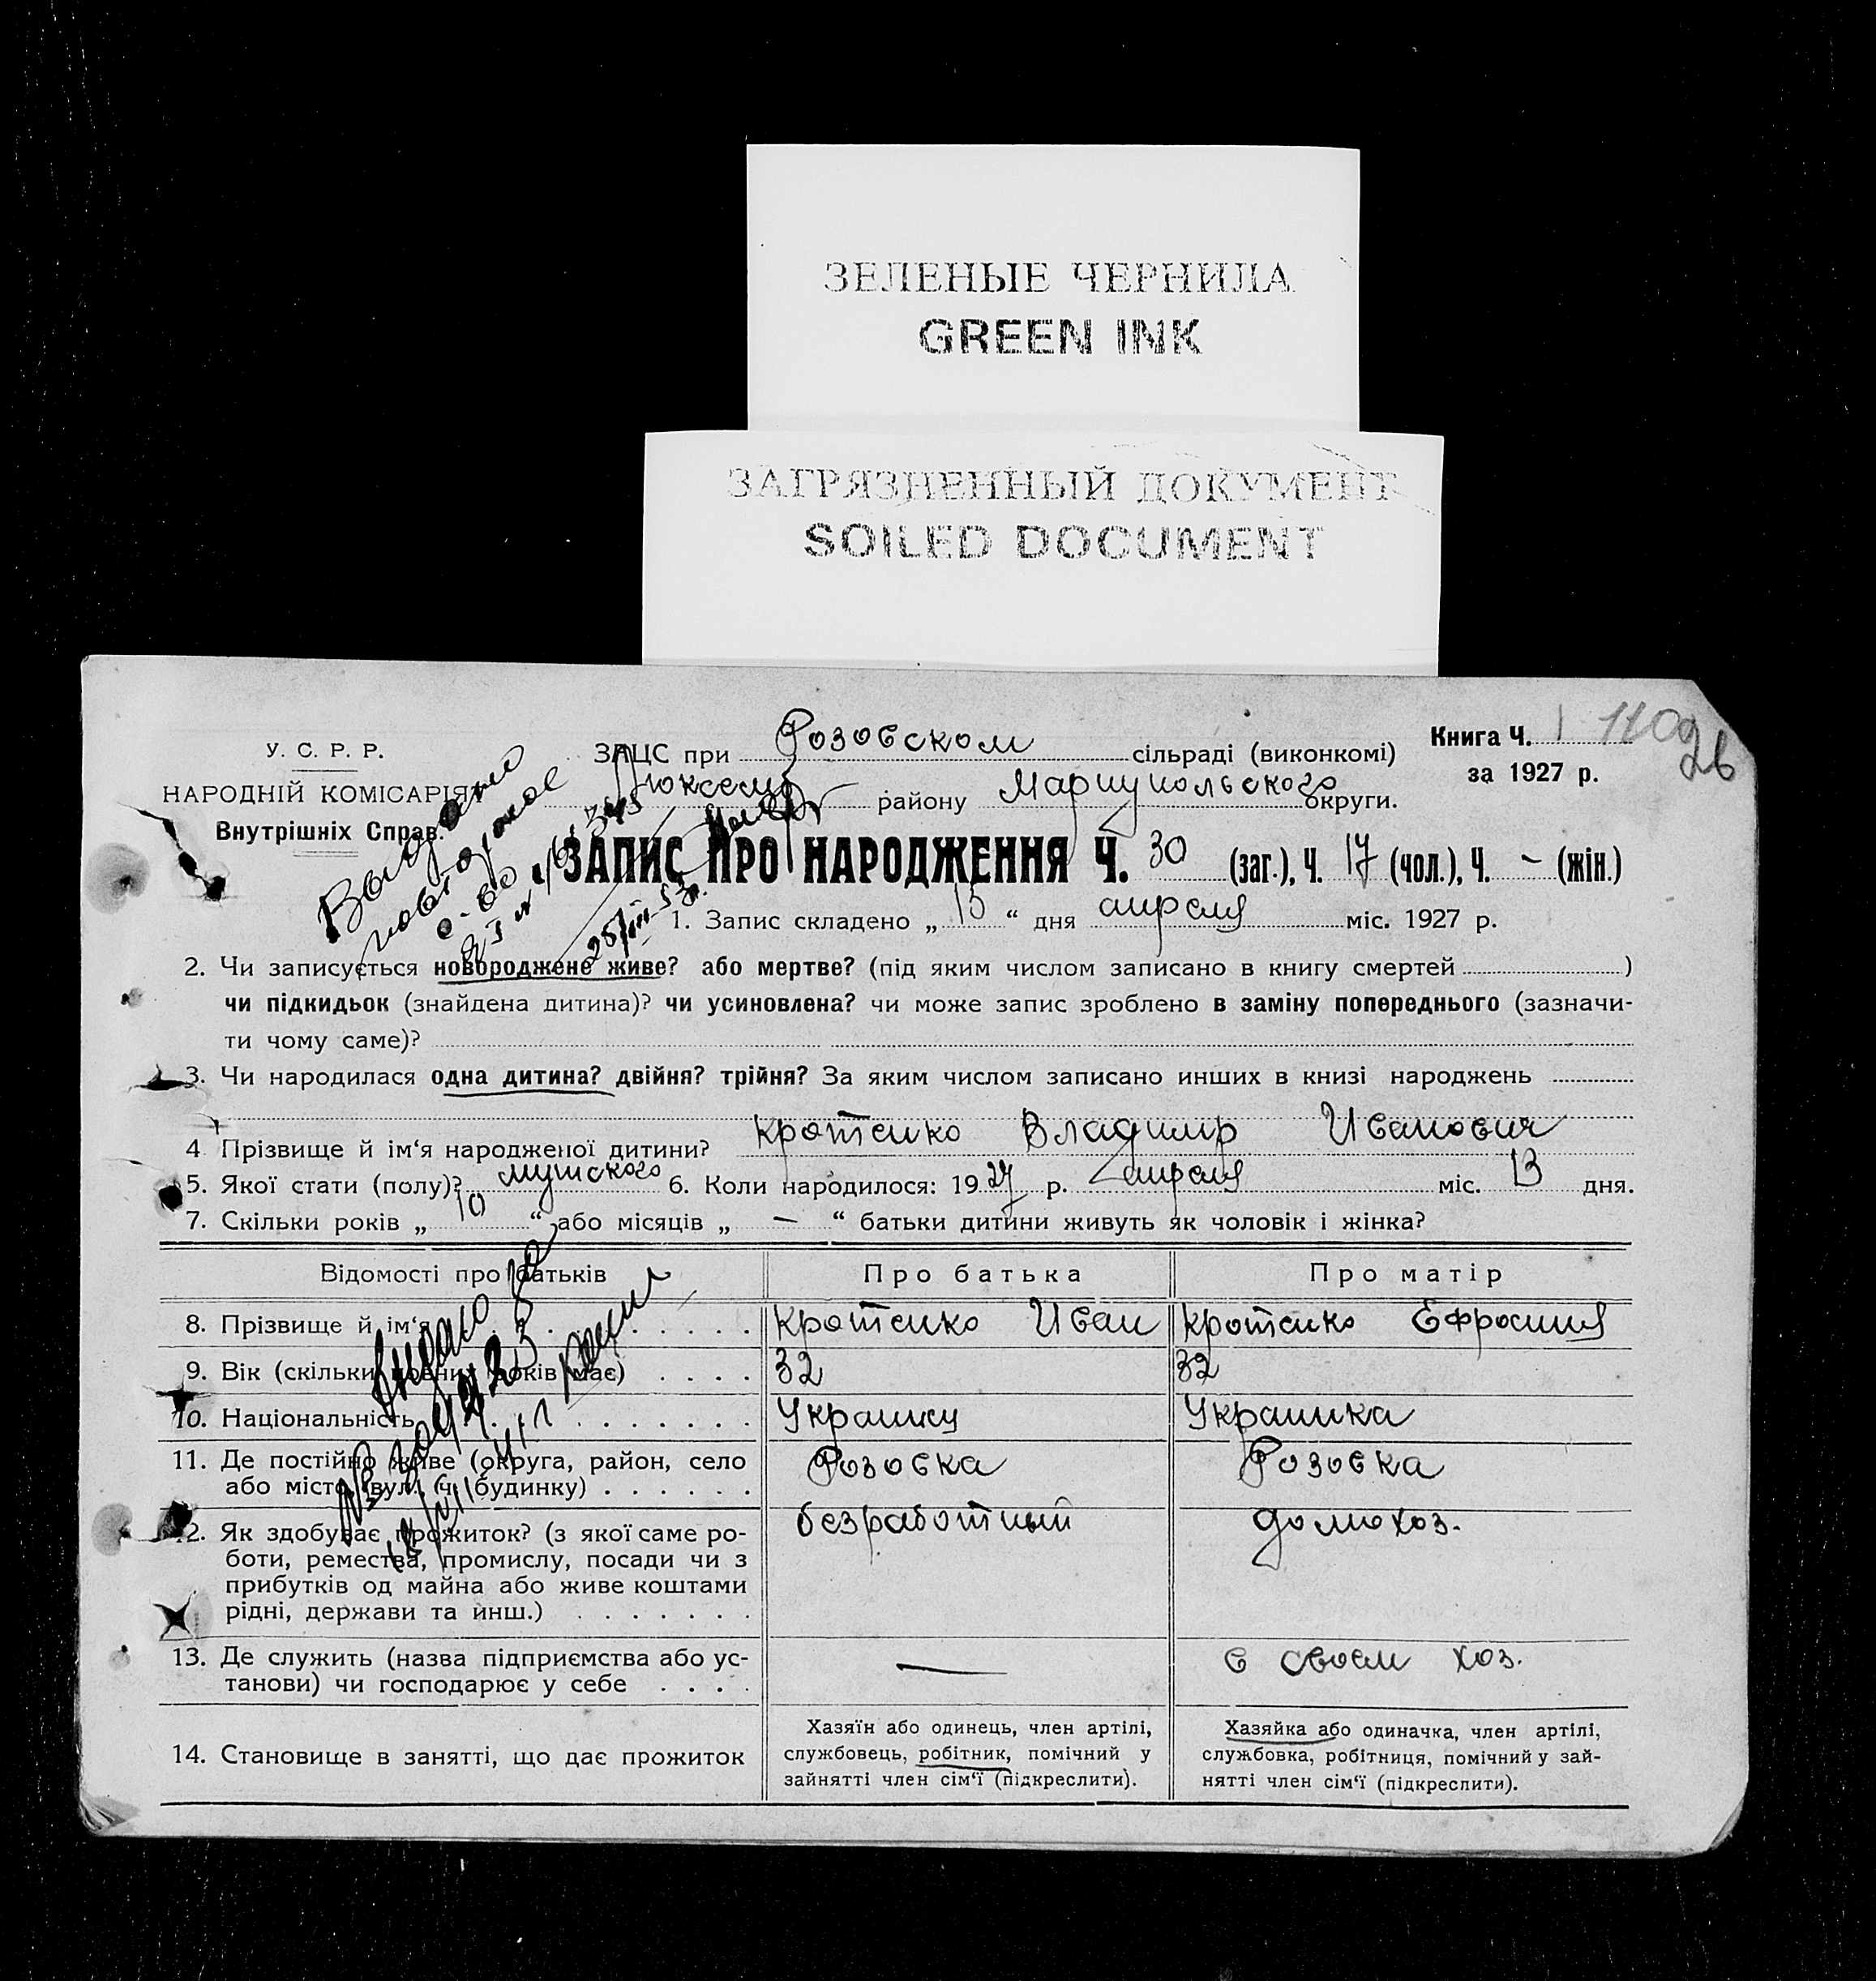 ЗЕЛЕНЫЕ ЧЕРНИЛА
GREEN INK
ЗАГРЯЗНЕННЫЙ ДОКУМЕНТ
SOILED DOCUMENT
У. С. Р. Р.
НАРОДНІЙ КОМІСАРІЯТ
Внутрішніх Справ.
ЗАЦС при Розовском сільраді (виконкомі)
Люксемб району Мариупольского округи.
Книга Ч. 1 110 26
за 1927 р.
Выдано
повторное
с-во
ЗАПИС ПРО НАРОДЖЕННЯ Ч. 30 (заг.), Ч. 17 (чол.), Ч. – (жін.)
1. Запис складено „ 15 “ дня апреля міс. 1927 р.
2. Чи записується новороджене живе? або мертве? (під яким числом записано в книгу смертей )
чи підкидьок (знайдена дитина)? чи усиновлена? чи може запис зроблено в заміну попереднього (зазначи-
ти чому саме)?
3. Чи народилася одна дитина? двійня? трійня? За яким числом записано инших в книзі народжень
4 Прізвище й ім‘я народженої дитини? Кротенко Владимир Иванович
5. Якої стати (полу)? мужского 6. Коли народилося: 1927 р. апреля міс. 13 дня.
7. Скільки років „ 10 “ або місяців „ — “ батьки дитини живуть як чоловік і жінка?
Відомості про батьків Про батька Про матір
8. Прізвище й ім‘я Кротенко Иван Кротенко Ефросиния
9. Вік (скільки повних років має) 32 32
10. Національність Украинец Украинка
11. Де постійно живе (округа, район, село
або місто, вул., ч. будинку) Розовка Розовка
12. Як здобуває прожиток? (з якої саме ро-
боти, ремества, промислу, посади чи з
прибутків од майна або живе коштами
рідні, держави та инш.) безработный домохоз.
13. Де служить (назва підприємства або ус-
танови) чи господарює у себе — в своем хоз.
14. Становище в занятті, що дає прожиток
Хазяїн або одинець, член артілі,
службовець, робітник, помічний у
зайнятті член сім‘ї (підкреслити).
Хазяйка або одиначка, член артілі,
службовка, робітниця, помічний у зай-
нятті член сім‘ї (підкреслити).